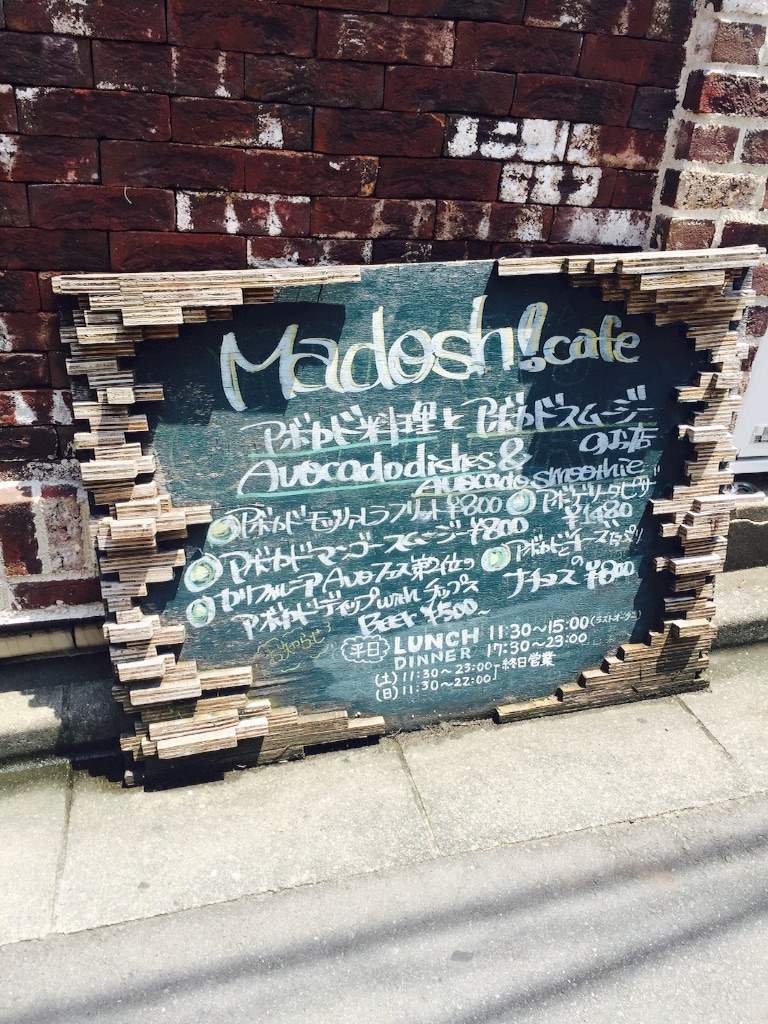 Madosh!cafe
アボカド料理とアボカドスムージー
のお店
Avocado dishes &
Avocado smoothie
アボカドモッツァレラフリット¥800
アボカドマンゴースムージー¥800
カリフォルニアAvoフェス第2位の
アボカドディップ with チップス
Beer ¥500~
ピザ
¥1480
アボカドとチーズたっぷり
の
ナチョス ¥800
お知らせ
平日 LUNCH 11:30~15:00(ラストオーダー)
DINNER 17:30~23:00
(土) 11:30~23:00 終日営業
(日) 11:30~22:00